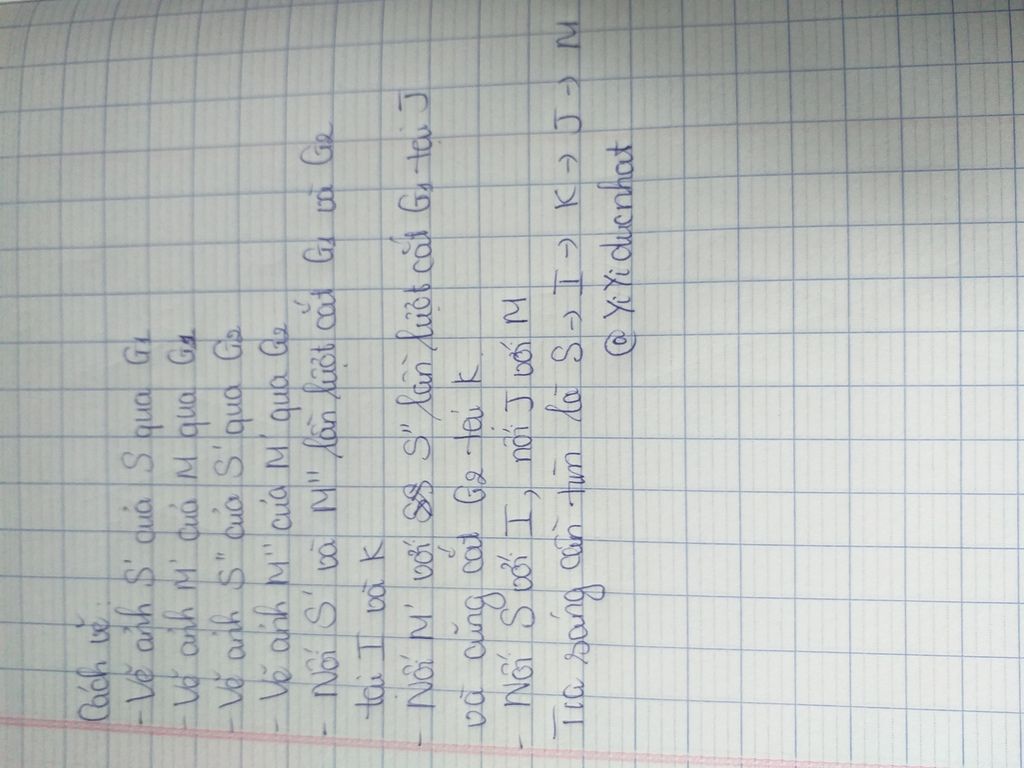 Cách vẽ:
- Vẽ ảnh S' của S qua G1
- Vẽ ảnh M' của M qua G1
- Vẽ ảnh S" của S' qua G2
- Vẽ ảnh M" của M' qua G2
- Nối S' và M" lần lượt cắt G1 và G2
tại I và K
- Nối M' với S" lần lượt cắt G1 tại J
và cũng cắt G2 tại K
- Nối S với I, nối J với M
Tia sáng cần tìm là S → I → K → J → M
@YiYiducnhat